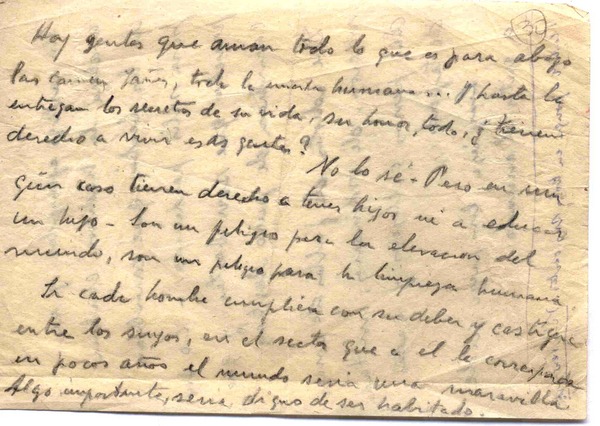 Hay gentes que aman todo lo que es para abajo
Las Yañes, toda la mierda humana... y hasta la
entregan los secretos de su vida, su honor, todo, ¿tienen
derecho a vivir estas gentes?
No lo sé - Pero en nin
gún caso tienen derecho a tener hijos ni a educar
un hijo - Son un peligro para la elevacion del
mundo, son un peligro para la limpieza humana
Si cada hombre cumpliera con su deber y castigue
entre los suyos, en el sector que a el le corresponda
en pocos años el mundo seria una maravilla
Algo importante, seria digno de ser habitado.